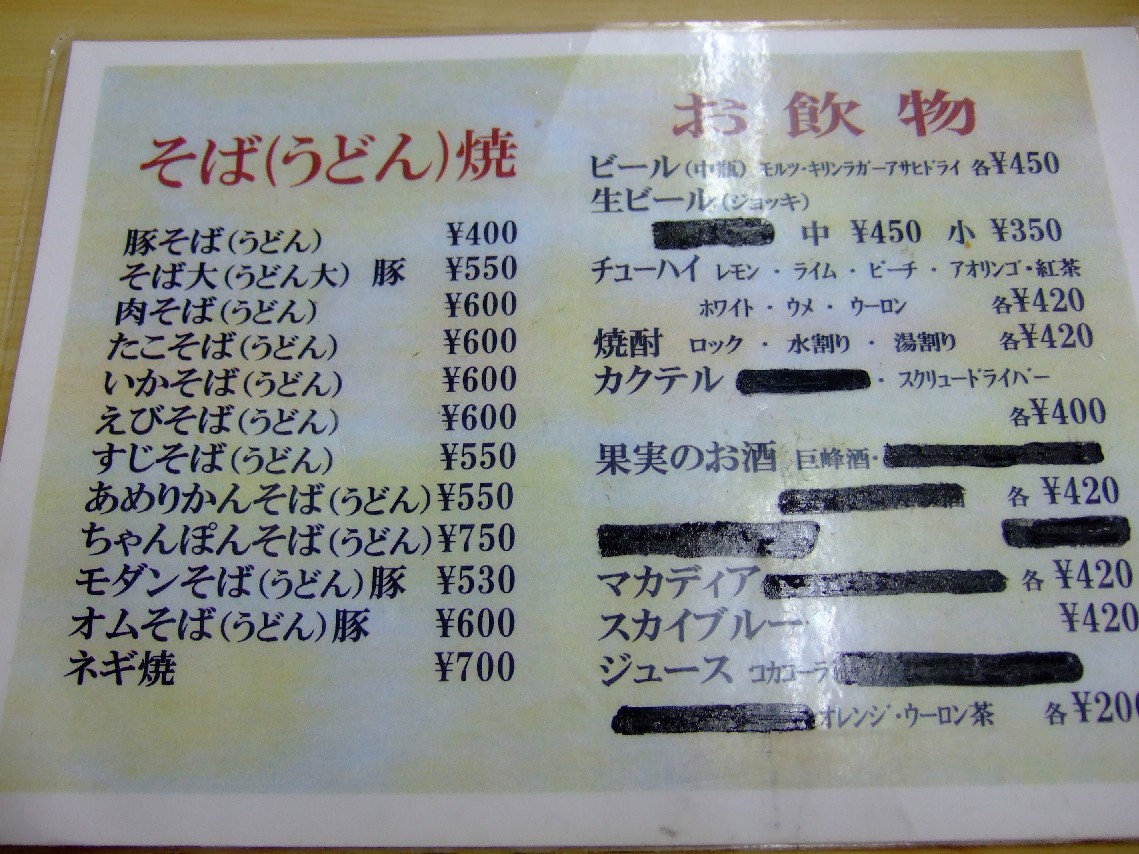 そば(うどん)焼
豚そば(うどん) ¥400
そば大(うどん大) 豚 ¥550
肉そば(うどん) ¥600
たこそば(うどん) ¥600
いかそば(うどん) ¥600
えびそば(うどん) ¥600
すじそば(うどん) ¥550
あめりかんそば(うどん) ¥550
ちゃんぽんそば(うどん) ¥750
モダンそば(うどん)豚 ¥530
オムそば(うどん)豚 ¥600
ネギ焼 ¥700
お飲物
ビール(中瓶) モルツ・キリンラガーアサヒドライ 各¥450
生ビール(ジョッキ)
中 ¥450 小 ¥350
チューハイ レモン・ライム・ピーチ・アオリンゴ・紅茶
ホワイト・ウメ・ウーロン 各¥420
焼酎 ロック・水割り・湯割り 各¥420
カクテル ・スクリュードライバー
各¥400
果実のお酒 巨峰酒・
各 ¥420
マカディア 各 ¥420
スカイブルー ¥420
ジュース コカコーラ
オレンジ・ウーロン茶 各¥200